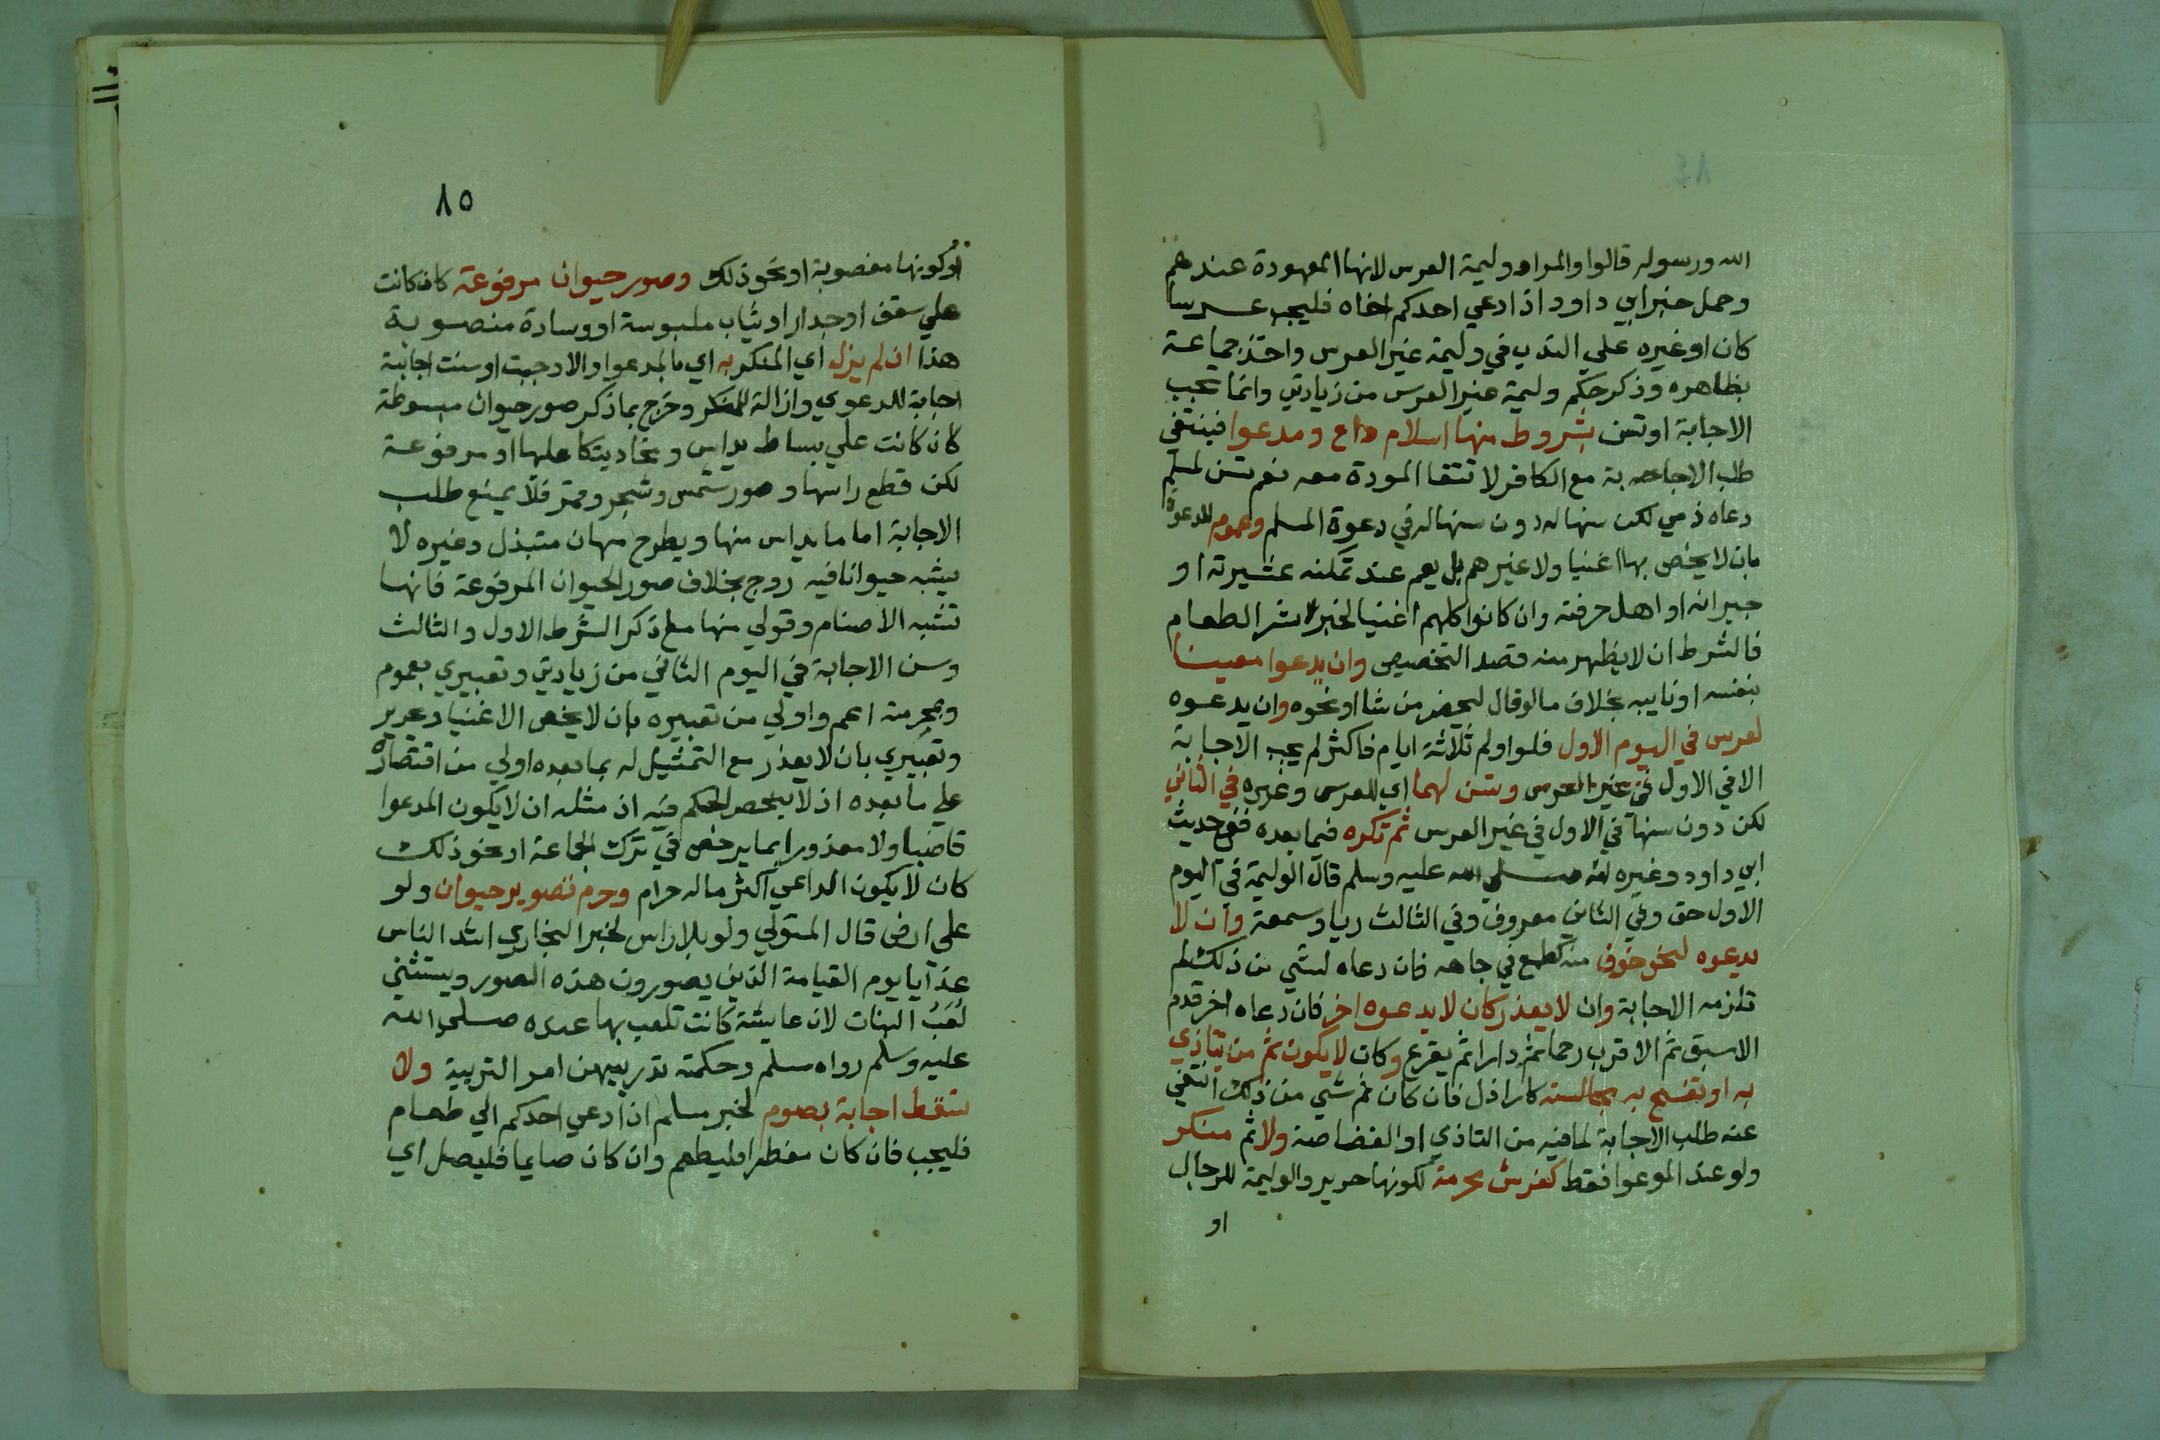 الله ورسوله قالوا والمراد وليمة العرس لانها المعهودة عندهم
وحمل خبر ابي داود اذا دعي احدكم اخاه فليجب عرسا
كان او غيره علي الندب في وليمة غير العرس واخذ جماعة
بظاهره وذكر حكم وليمة غير العرس من زيادتي وانما تجب
الاجابة او تسن بشروط منها اسلام داع ومدعوا فينتفي
طلب الاجابة مع الكافر لانتفا المودة معه نعم تسن لمسلم
دعاه ذمي لكن سنها له دون سنها له في دعوة المسلم وعموم للدعوة
بان لا يخص بها اغنيا ولا غيرهم بل يعم عند تمكنه عشيرته او
جيرانه او اهل حرفته وان كانوا كلهم اغنيا لخبر شر الطعام
فالشرط ان لا يظهر منه قصد التخصيص وان يدعوا معينا
بنفسه او نايبه بخلاف ما لو قال ليحضر من شا او نحوه وان يدعوه
لعرس في اليوم الاول فلو اولم ثلاثة ايام فاكثر لم يجب الاجابة
الا في الاول في غير العرس وتسن لهما اي للعرس وغيره في الثاني
لكن دون سنها في الاول في غير العرس ثم تكره فيما بعده ففي حديث
ابي داود وغيره انه صلي الله عليه وسلم قال الوليمة في اليوم
الاول حق وفي الثاني معروف وفي الثالث ريا وسمعة وان لا
يدعوه لنحو خوف منه كطمع في جاهه فان دعاه لشي من ذلك لم
تلزمه الاجابة وان لا يعذر كان لا يدعوه اخر فان دعاه اخر قدم
الاسبق ثم الاقرب رحما ثم دارا ثم يقرع وكان لا يكون ثم من يتاذي
به او تقبح به مجالسته كاراذل فان كان ثم شي من ذلك انتفي
عنه طلب الاجابة لما فيه من التاذي او الغضاضة ولا ثم منكر
ولو عند الموعوا فقط كفرش محرمة لكونها حرير والوليمة للرجال
او
٨٥
او كونها مغصوبة او نحو ذلك وصور حيوان مرفوعة كان كانت
علي سقف او جدار او ثياب ملبوسة او وسادة منصوبة
هذا ان لم يزل اي المنكر به اي بالمدعوا والا وجبت او سنت اجابته
اجابة للدعوي وازالة للمنكر وخرج بما ذكر صور حيوان مبسوطة
كان كانت علي بساط يداس ومخاد يتكا عليها او مرفوعة
لكن قطع راسها وصور شمس وشجر وقمر فلا يمنع طلب
الاجابة اما ما يداس منها ويطرح مهان متبذل وغيره لا
يشبه حيوانا فيه روح بخلاف صور الحيوان المرفوعة فانها
تشبه الاصنام وقولي منها مع ذكر الشرط الاول والثالث
وسن الاجابة في اليوم الثاني من زيادتي وتعبيري بعموم
وبمحرمة اعم واولي من تعبيره بان لا يخص الاغنيا وبحرير
وتعبيري بان لا يعذر مع التمثيل له بما بعده اولي من اقتصاره
علي ما بعده اذ لا ينحصر الحكم فيه اذ مثله ان لا يكون المدعوا
قاضيا ولا معذورا بما يرخص في ترك الجماعة او نحو ذلك
كان لا يكون الداعي اكثر ماله حرام وحرم تصوير حيوان ولو
علي ارض قال المتولي ولو بلا راس لخبر البخاري اشد الناس
عذابا يوم القيامة الذين يصورون هذه الصور ويستثني
لعب البنات لان عايشة كانت تلعب بها عنده صلي الله
عليه وسلم رواه مسلم وحكمته تدريبهن امر التربية ولا
تسقط اجابة بصوم لخبر مسلم اذا دعي احدكم الي طعام
فليجب فان كان مفطرا فليطعم وان كان صايما فليصل اي